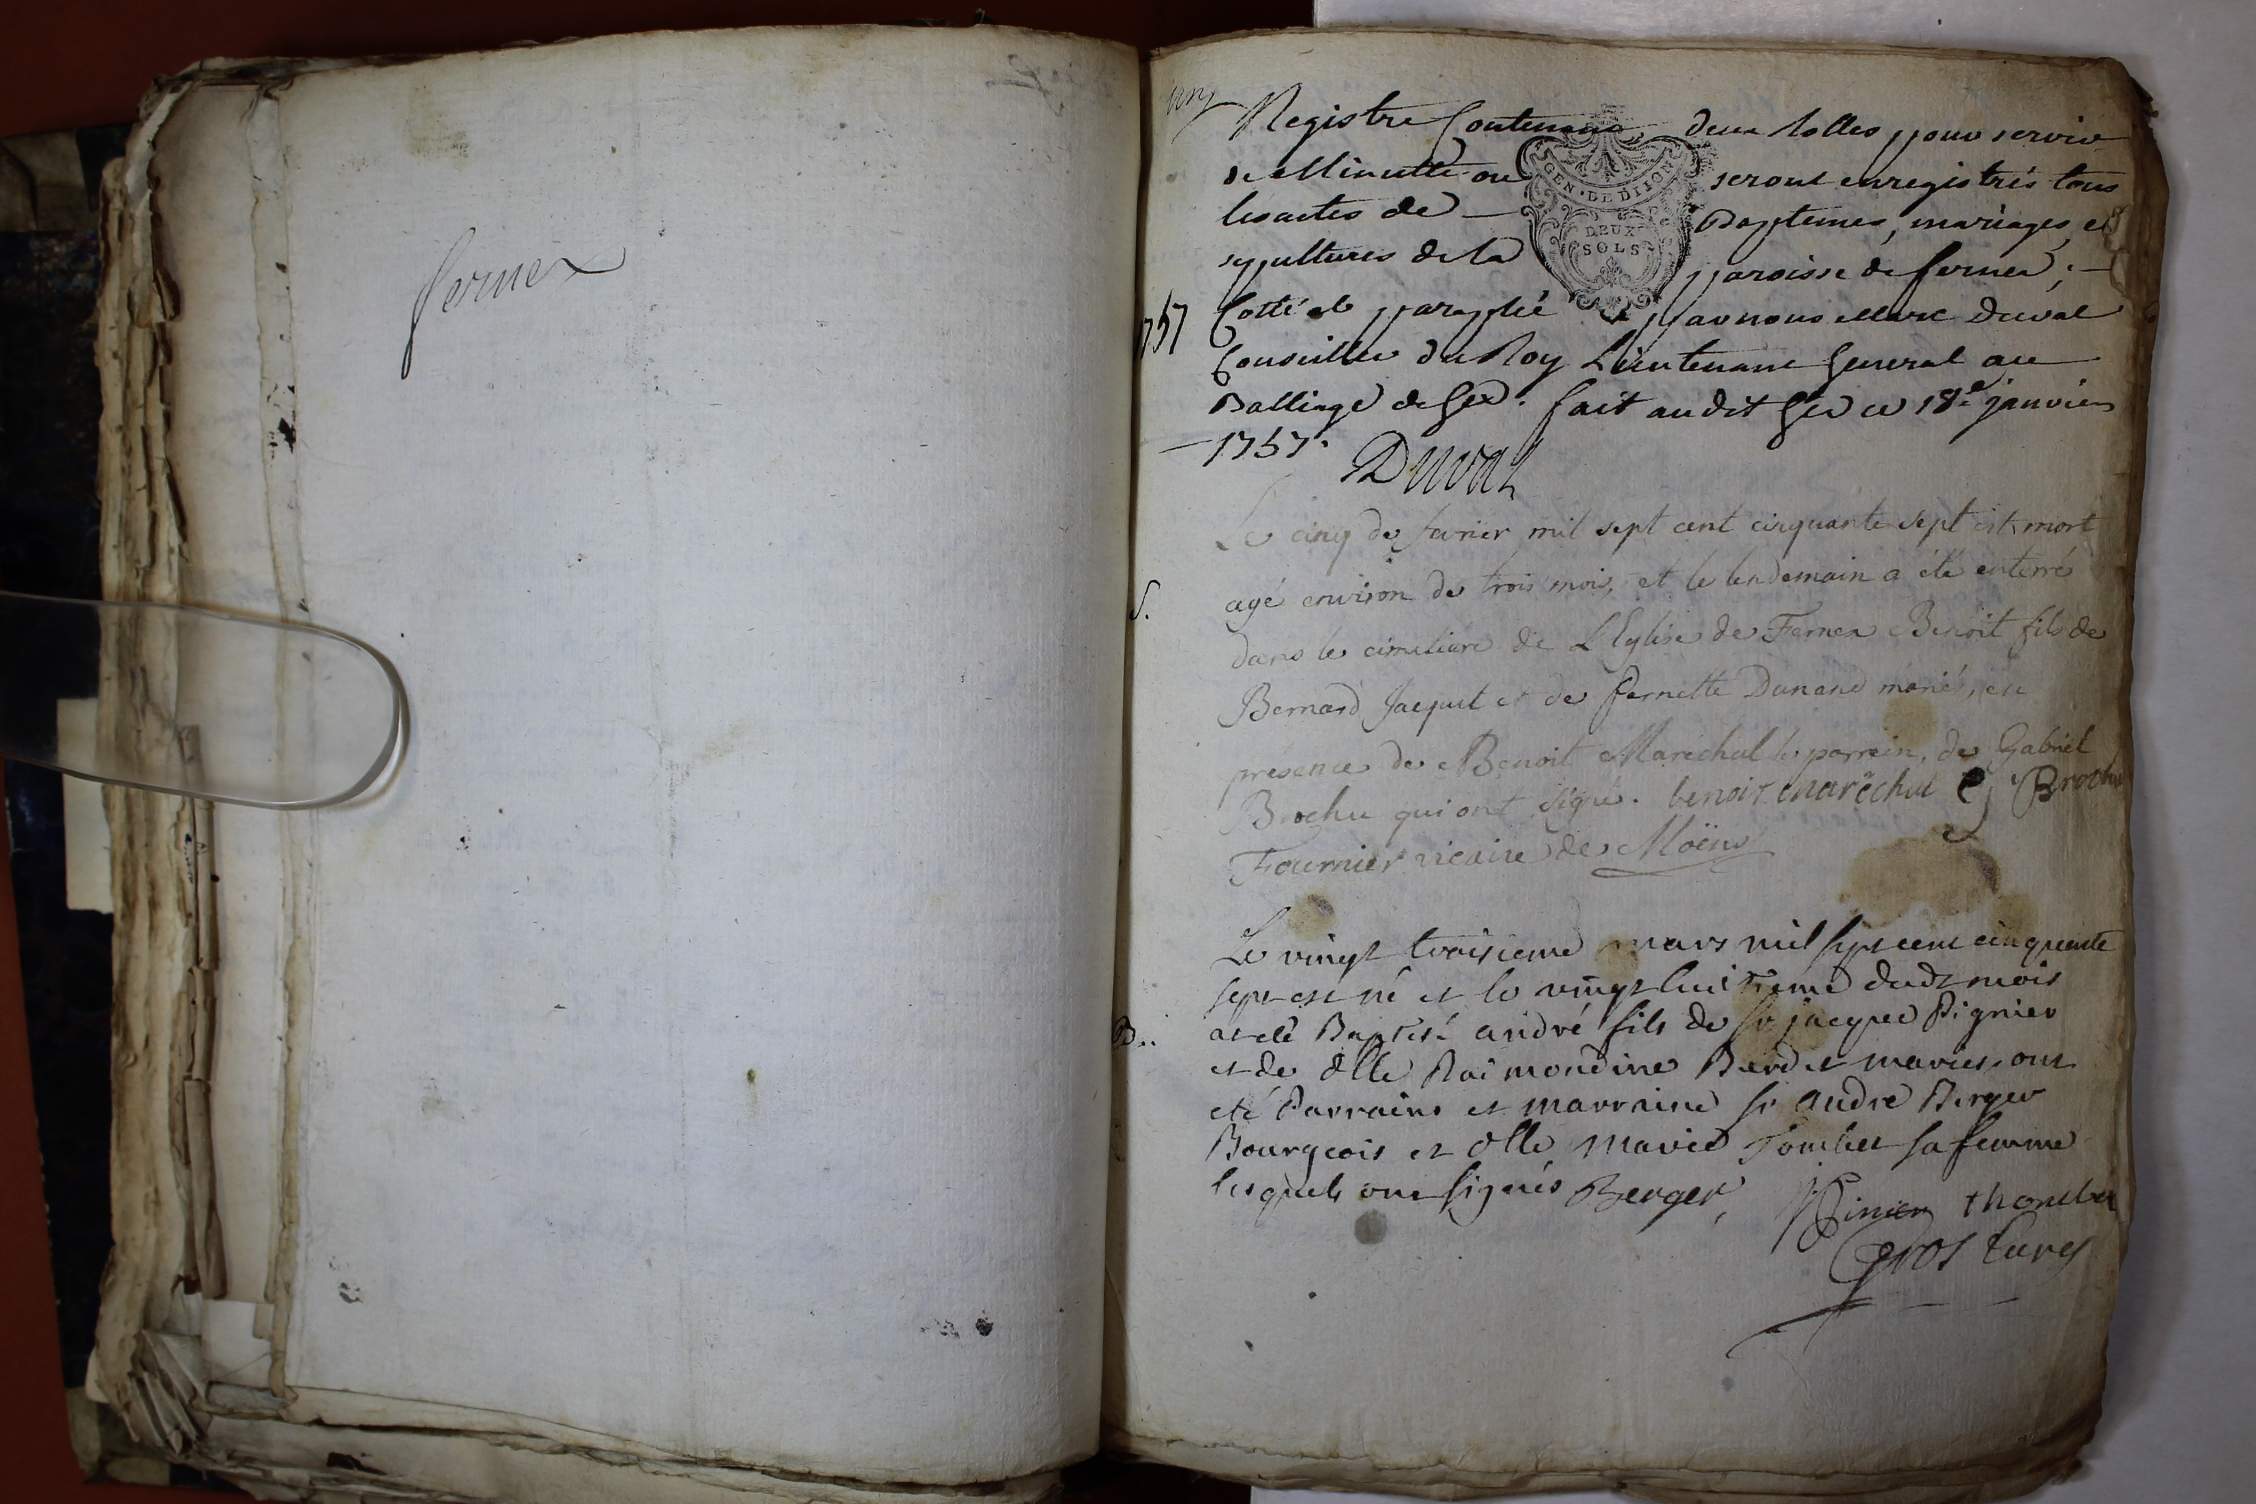 fernex
Registre Contenant deux Rolles pour servir
de Minutte ou seront enregistrés tous
les actes de Baptemes, mariages, et
sepultures de la paroisse de fernex,
GEN · DE DIJON
DEUX
SOLS
1757
Cotté et paraphé par nous Marc Duval
Conseiller du Roy Lieutenant General au
Balliage de Gex. fait audit Gex ce 18e janvier
1757.
Duval
Le cinq de favrier mil sept cent cinquante sept est mort
S.
agé environ de trois mois, et le lendemain a été enterré
dans le cimetiere de L'Eglise de Fernex Benoit fils de
Bernard Jaquet et de pernette Dunand mariés, en
présence de Benoit Maréchal le parrein, de Gabriel
Brochu qui ont signé. benoit maréchal G Brochu
Fournier vicaire de Moëns
Le vingt troisieme mars mil sept cent cinquante
sept est né et le vingt huitieme dudt mois
B..
a eté Baptisé andré fils de sr jacque Pignier
et de dlle Raimondine Burdet maries, ont
eté Parrains et marraine sr andre Berger
Bourgeois et dlle marie Tombet sa femme
lesquels ont signés Berger, Pinier thombet
Gros Curé